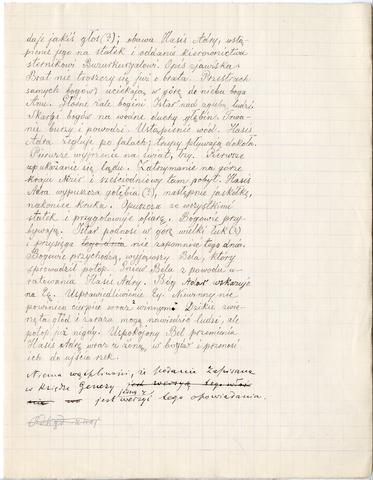 daje jakiś głos (?); obawa Hasis Adry, wstą-
pienie jego na statek i oddanie kierownictwa
sternikowi Buzurkurgalowi. Opis zjawiska.
Brat nie troszczy się już o brata. Przestrach
samych bogów; uciekają w górę do nieba boga
Anu. Głośne żale bogini Istar nad zgubą ludzi.
Skargi bogów na wodne duchy głębin. Trwa-
nie burzy i powodzi. Ustąpienie wód. Hasis
Adra żegluje po falach; trupy pływają dokoła.
Pierwsze wyjrzenie na świat, łzy. Pierwsze
ukazanie się lądu. Zatrzymanie na górze
kraju Nizir i sześciodniowy tam pobyt. Hasis
Adra wypuszcza gołębia (?), następnie jaskółkę,
nakoniec kruka. Opuszcza ze wszystkimi
statek i przygotowuje ofiarę. Bogowie przy-
bywają. Istar podnosi w górę wielki łuk (?)
i przysięga tego dnia nie zapomnieć tego dnia.
Bogowie przychodzą, wyjąwszy Bela, który
sprowadził potop. Gniew Bela z powodu u-
ratowania Hasis Adry. Bóg Adar wskazuje
na Eę. Usprawiedliwienie Ey. Niewinny nie
powinien cierpieć wraz z winnym. Dzikie zwie-
rzęta, głód i zaraza mogą nawiedzić ludzi, ale
potop już nigdy. Uspokojony Bel przemienia
Hasis Adrę wraz z żoną w bogów i przenosi
ich do ujścia rzek.
Niema wątpliwości, że podanie zapisane
w księdze Genezy jest wersyą tego
jest wersyą tego opowiadania.